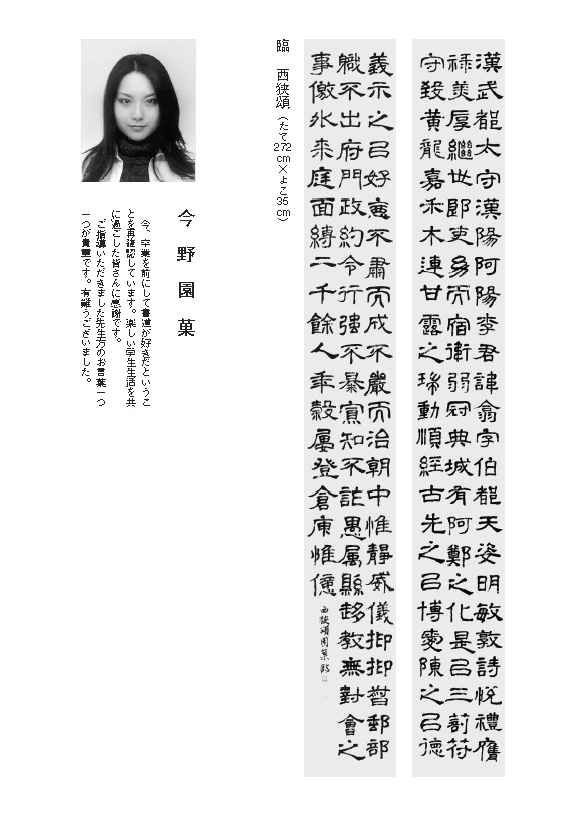 漢武都太守漢陽阿陽李君諱翕字伯都天姿明敏敦詩悦禮膺
禄美厚繼世郎吏幼而宿衛弱冠典城有阿鄭之化是以三剖符
守致黄龍嘉禾木連甘露之瑞動順經古先之以博愛陳之以徳
義示之以好惡不肅而成不嚴而治朝中惟静威儀抑抑督郵部
職不出府門政約令行強不暴寡知不詐愚属縣趍教無對會之
事儌外来庭面縛二千餘人年穀屡登倉庾惟億
西狭頌園菓臨
臨　西狭頌（たて272cm×よこ35cm）
今野園菓
今、卒業を前にして書道が好きだというこ
とを再確認しています。楽しい学生生活を共
に過ごした皆さんに感謝です。
ご指導いただきました先生方のお言葉一つ
一つが貴重です。有難うございました。